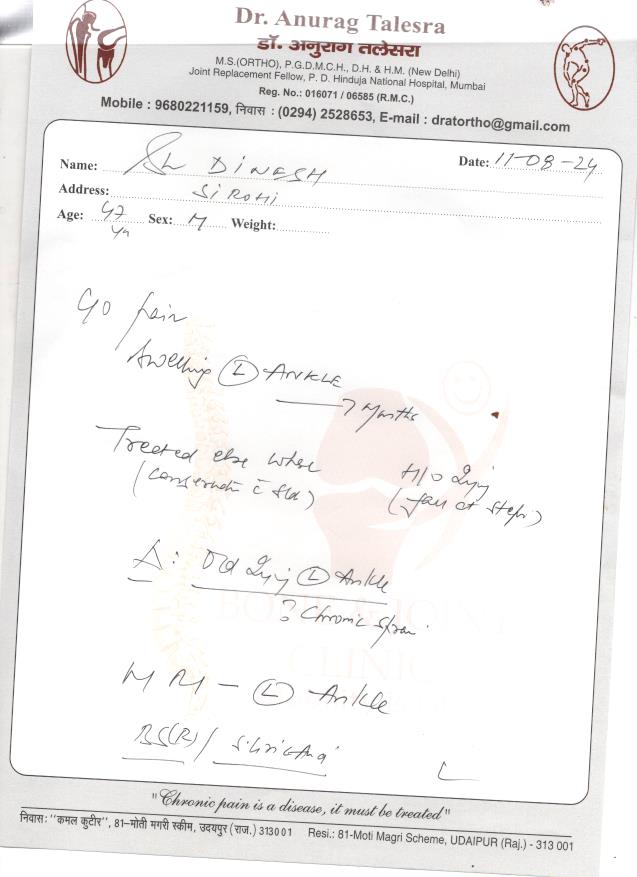 Dr. Anurag Talesra
डॉ. अनुराग तलेसरा
M.S.(ORTHO), P.G.D.M.C.H., D.H. & H.M. (New Delhi)
Joint Replacement Fellow, P. D. Hinduja National Hospital, Mumbai
Reg. No.: 016071 / 06585 (R.M.C.)
Mobile : 9680221159, निवास : (0294) 2528653, E-mail : dratortho@gmail.com
Name: Sh DINESH Date: 11-08-24
Address: SIROHI
Age: 47 Sex: M Weight:
yr
C/o pain
Swelling (L) ANKLE
7 Months
Treated else where H/o Injury
(Conservative c̄ Slab) (fall at steps)
Δ: Old Injury (L) Ankle
? Chronic Sprain
BONE & JOINT
CLINIC
MRI - (L) Ankle
BS(R) /
"Chronic pain is a disease, it must be treated"
निवास: "कमल कुटीर", 81-मोती मगरी स्कीम, उदयपुर (राज.) 313001 Resi.: 81-Moti Magri Scheme, UDAIPUR (Raj.) - 313 001